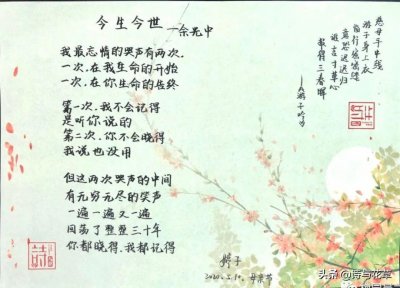 今生今世
—余光中
我最忘情的哭声有两次
一次，在我生命的开始
一次，在你生命的告终
第一次，我不会记得
是听你说的
第二次，你不会晓得
我说也没用
但这两次哭声的中间
有无穷无尽的笑声
一遍一遍又一遍
回荡了整整三十年
你都晓得，我都记得
2020.5.10. 母亲节
慈母手中线
游子身上衣
临行密密缝
意恐迟迟归
谁言寸草心
报得三春晖
—游子吟
头条 @诗与花草